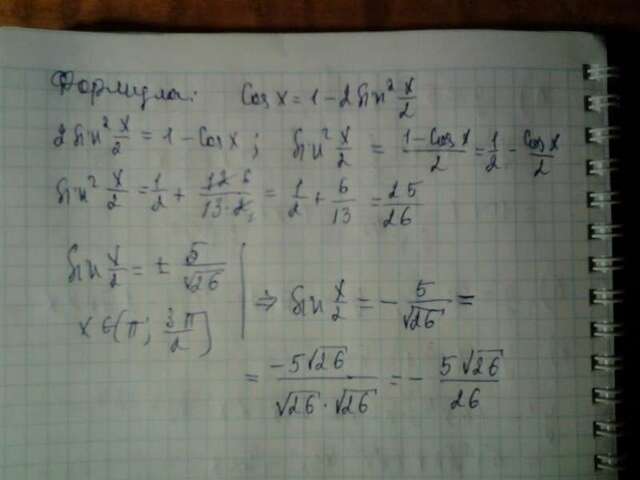 Формула: Cos x = 1 - 2 sin² x/2
2 sin² x/2 = 1 - Cos x ; sin² x/2 = (1 - Cos x)/2 = 1/2 - Cos x/2
sin² x/2 = 1/2 + 12 6/(13·2) = 1/2 + 6/13 = 25/26
sin x/2 = ± 5/√26
x ∈ (π; 3π/2]
⇒ sin x/2 = - 5/√26 =
= -5√26/(√26 · √26) = - 5√26/26